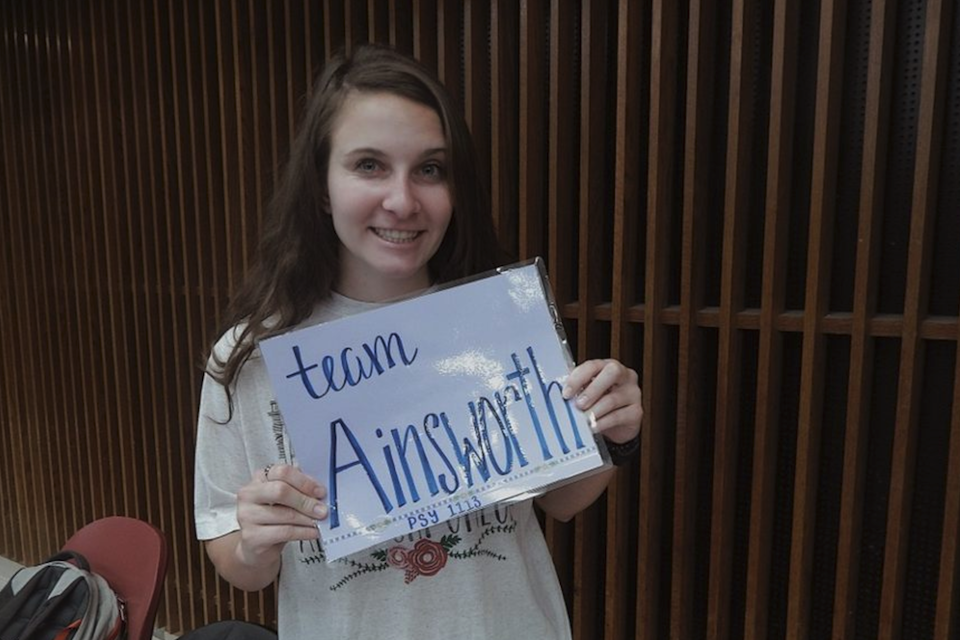 team
Ainsworth
PSY 1113